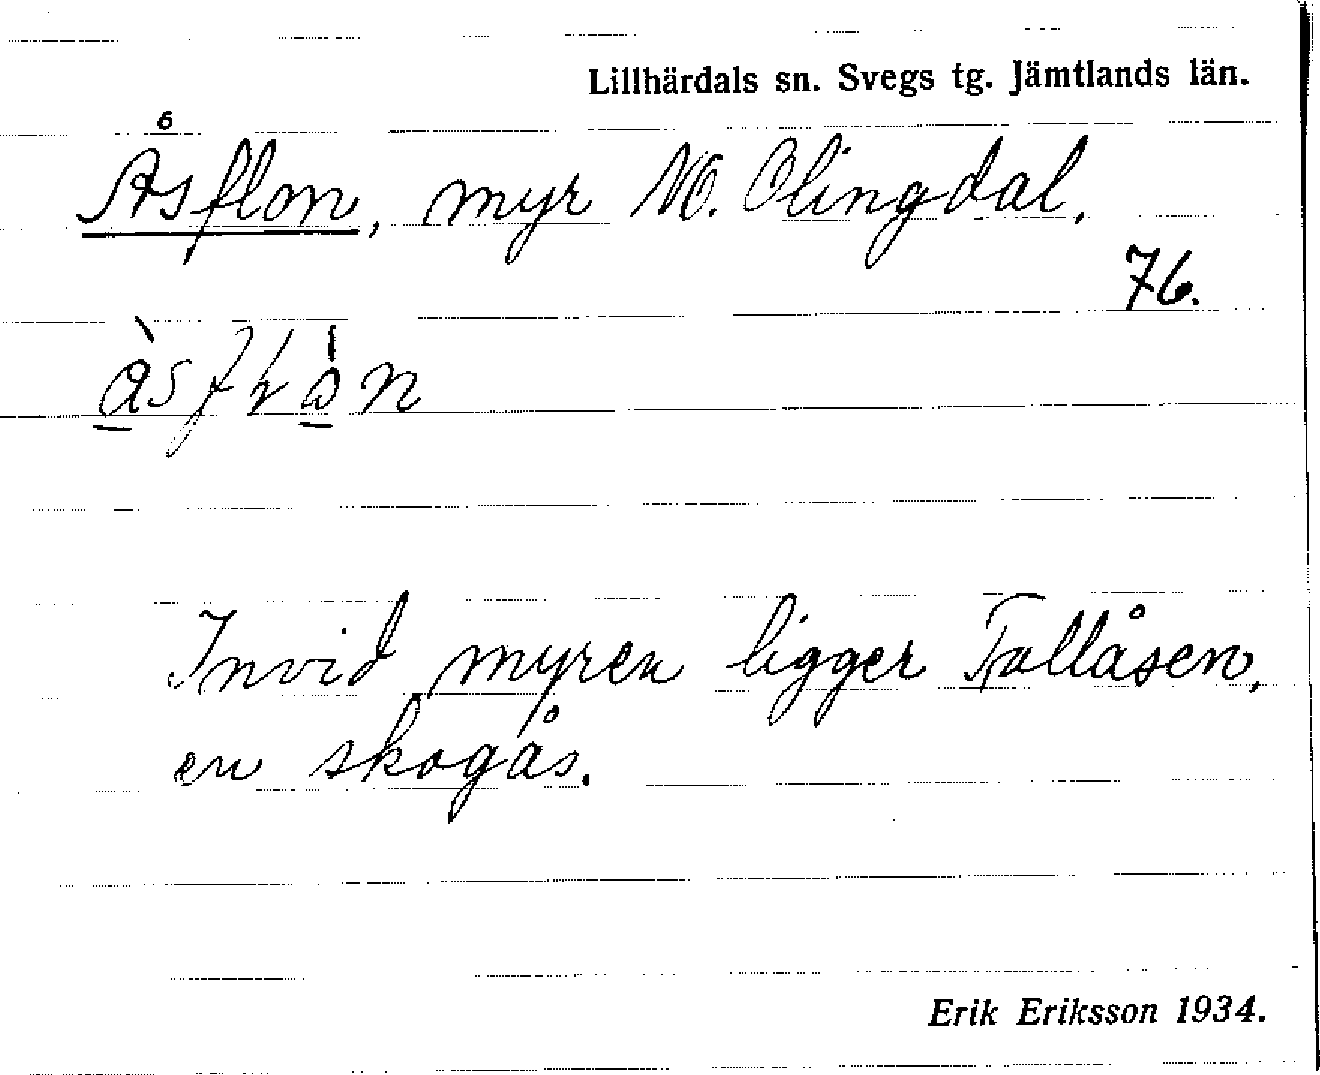 Lillhärdals sn. Svegs tg. Jämtlands län.
Åsflon, myr NO. Olingdal.
76.
Invid myren ligger Tallåsen,
en skogås.
Erik Eriksson 1934.